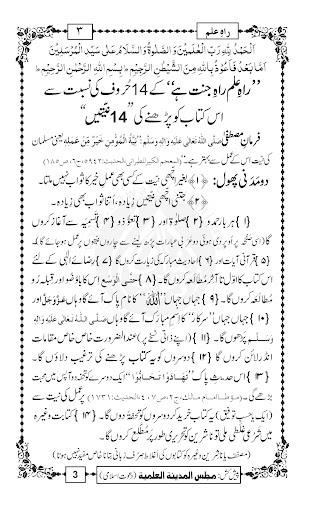 راہِ علم ۳
اَلْحَمْدُ لِلّٰهِ رَبِّ الْعٰلَمِيْنَ وَالصَّلٰوةُ وَالسَّلَامُ عَلٰى سَيِّدِ الْمُرْسَلِيْنَ
اَمَّا بَعْدُ فَاَعُوْذُ بِاللّٰهِ مِنَ الشَّيْطٰنِ الرَّجِيْمِ ط بِسْمِ اللّٰهِ الرَّحْمٰنِ الرَّحِيْمِ ط
”راہِ علم راہِ جنت ہے“ کے 14 حُروف کی نسبت سے
اس کتاب کو پڑھنے کی ”14 نیّتیں“
فرمانِ مصطفٰی صلَّی اللہُ تعالٰی علیہ والہٖ وسلَّم: نِيَّةُ الْمُؤْمِنِ خَيْرٌ مِّنْ عَمَلِهٖ یعنی مسلمان
کی نیت اس کے عمل سے بہتر ہے۔“ (المعجم الکبیر للطبرانی الحدیث: ۵۹۴۲، ج۶، ص۱۸۵)
دو مَدَنی پھول: {۱} بغیر اچھی نیت کے کسی بھی عملِ خیر کا ثواب نہیں ملتا۔
{۲} جتنی اچھی نیّتیں زیادہ، اُتنا ثواب بھی زیادہ۔
{۱} ہر بار حمد و {۲} صلوٰۃ اور {۳} تعوُّذ و {۴} تَسمِیہ سے آغاز کروں
گا (اسی صفحہ پر اُوپر دی ہوئی دو عَرَبی عبارات پڑھ لینے سے چاروں نیّتوں پر عمل ہو جائے گا)۔
{۵} قرآنی آیات اور {۶} احادیثِ مبارکہ کی زیارت کروں گا {۷} رضائے الٰہی کے لئے
اس کتاب کا اوّل تا آخِر مُطالَعہ کروں گا۔ {۸} حتَّی الْوَسْع اس کا باوُضُو اور قبلہ رُو
مُطالَعہ کروں گا۔ {۹} جہاں جہاں ”اللہ“ کا نامِ پاک آئے گا وہاں عَزَّوَجَلَّ اور
{۱۰} جہاں جہاں ”سرکار“ کا اِسمِ مبارک آئے گا وہاں صلَّی اللہُ تعالٰی علیہ والہٖ
وسلَّم پڑھوں گا۔ {۱۱} (اپنے ذاتی نسخے پر) عند الضرورت خاص خاص مقامات
انڈر لائن کروں گا {۱۲} دوسروں کو یہ کتاب پڑھنے کی ترغیب دلاؤں گا۔
{۱۳} اس حدیثِ پاک ”تَهَادَوْا تَحَابُّوْا“ ایک دوسرے کو تحفہ دو آپس میں محبت
بڑھے گی۔ پر عمل کی نیت سے
(ایک یا حسبِ توفیق) یہ کتاب خرید کر دوسروں کو تحفۃً دوں گا۔ {۱۴} کتابت وغیرہ
میں شَرعی غلطی ملی تو ناشرین کو تحریری طور پر مُطَّلع کروں گا۔
پیش کش: مجلس المدینۃ العلمیۃ (دعوتِ اسلامی) 3